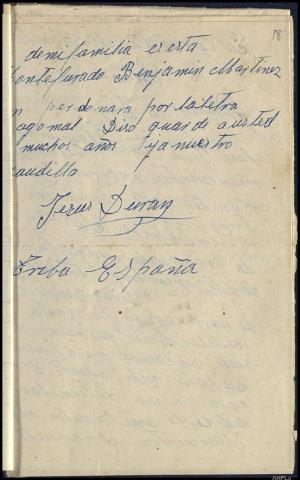 18
demi familia es esta
Benjamin Martinez
perdonara por la letra
ago mal Dios guarde a usted
muchos años i ja nuestro
audillo
Jesus Duran
Eriba España